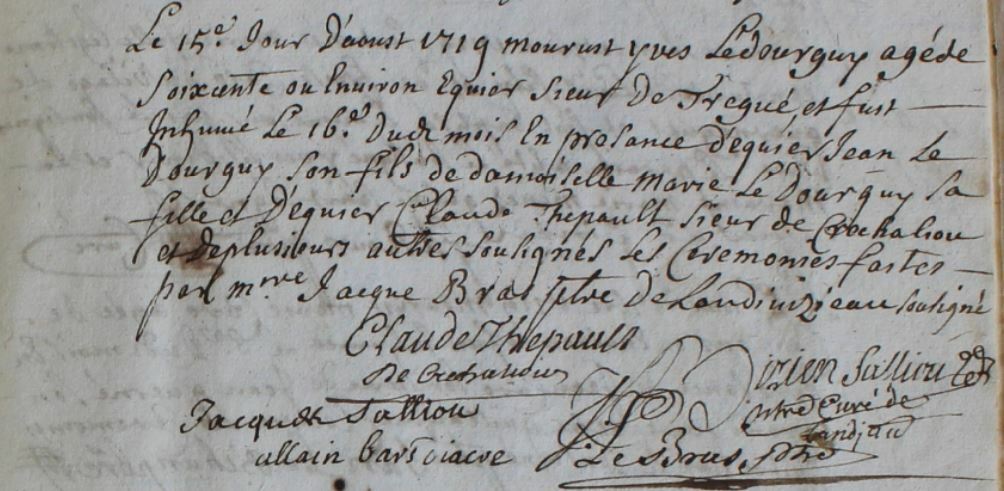 Le 15e. Jour D'aoust 1719 mourust yves Ledourguy agé de
Soixente ou Environ Equier Sieur De Tregué, et fust
Inhumé Le 16e. Dudt mois En presance d'equier Jean Le
Dourguy son fils de damoiselle marie Le Dourguy sa
fille et D'equier Claude Thepault sieur de Crechaliou
et de plusieurs autres soulignés Les Ceremonies faites
par mre Jacque Bras ptre De Landivizieau souligné
Claude Thepault
De Crechaliou
Salliou
ptre Curé de
Jacques Salliou
Landi
allain bars diacre
Le Bras, ptre